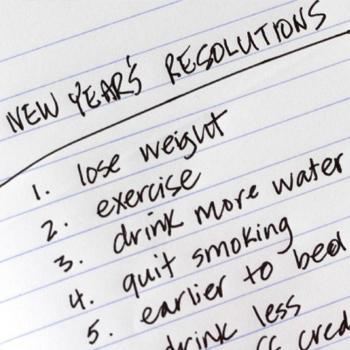 NEW YEAR'S RESOLUTIONS
1. lose weight
2. exercise
3. drink more water
4. quit smoking
5. earlier to bed
drink less